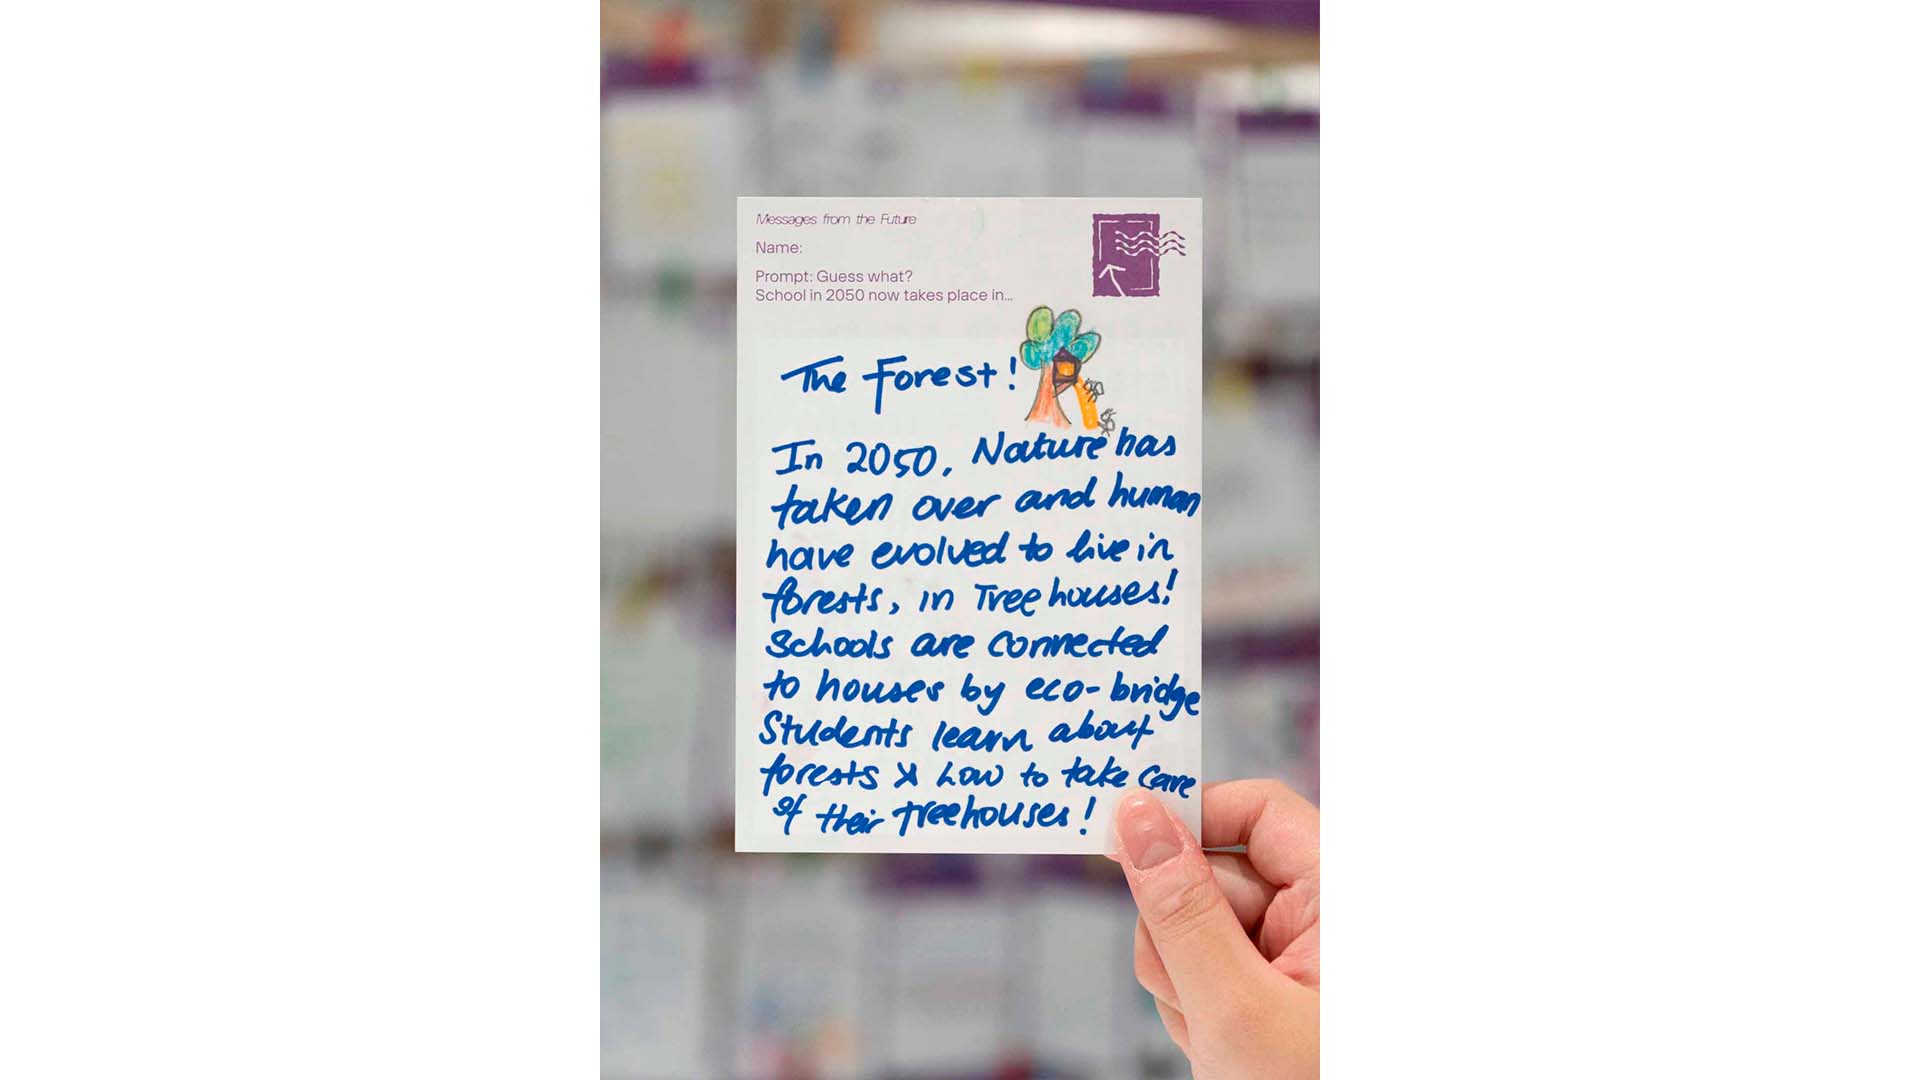 Messages from the Future
Name:
Prompt: Guess what?
School in 2050 now takes place in...
The Forest!
In 2050, Nature has
taken over and human
have evolved to live in
forests, in Treehouses!
Schools are connected
to houses by eco-bridge
Students learn about
forests & how to take care
of their treehouses!